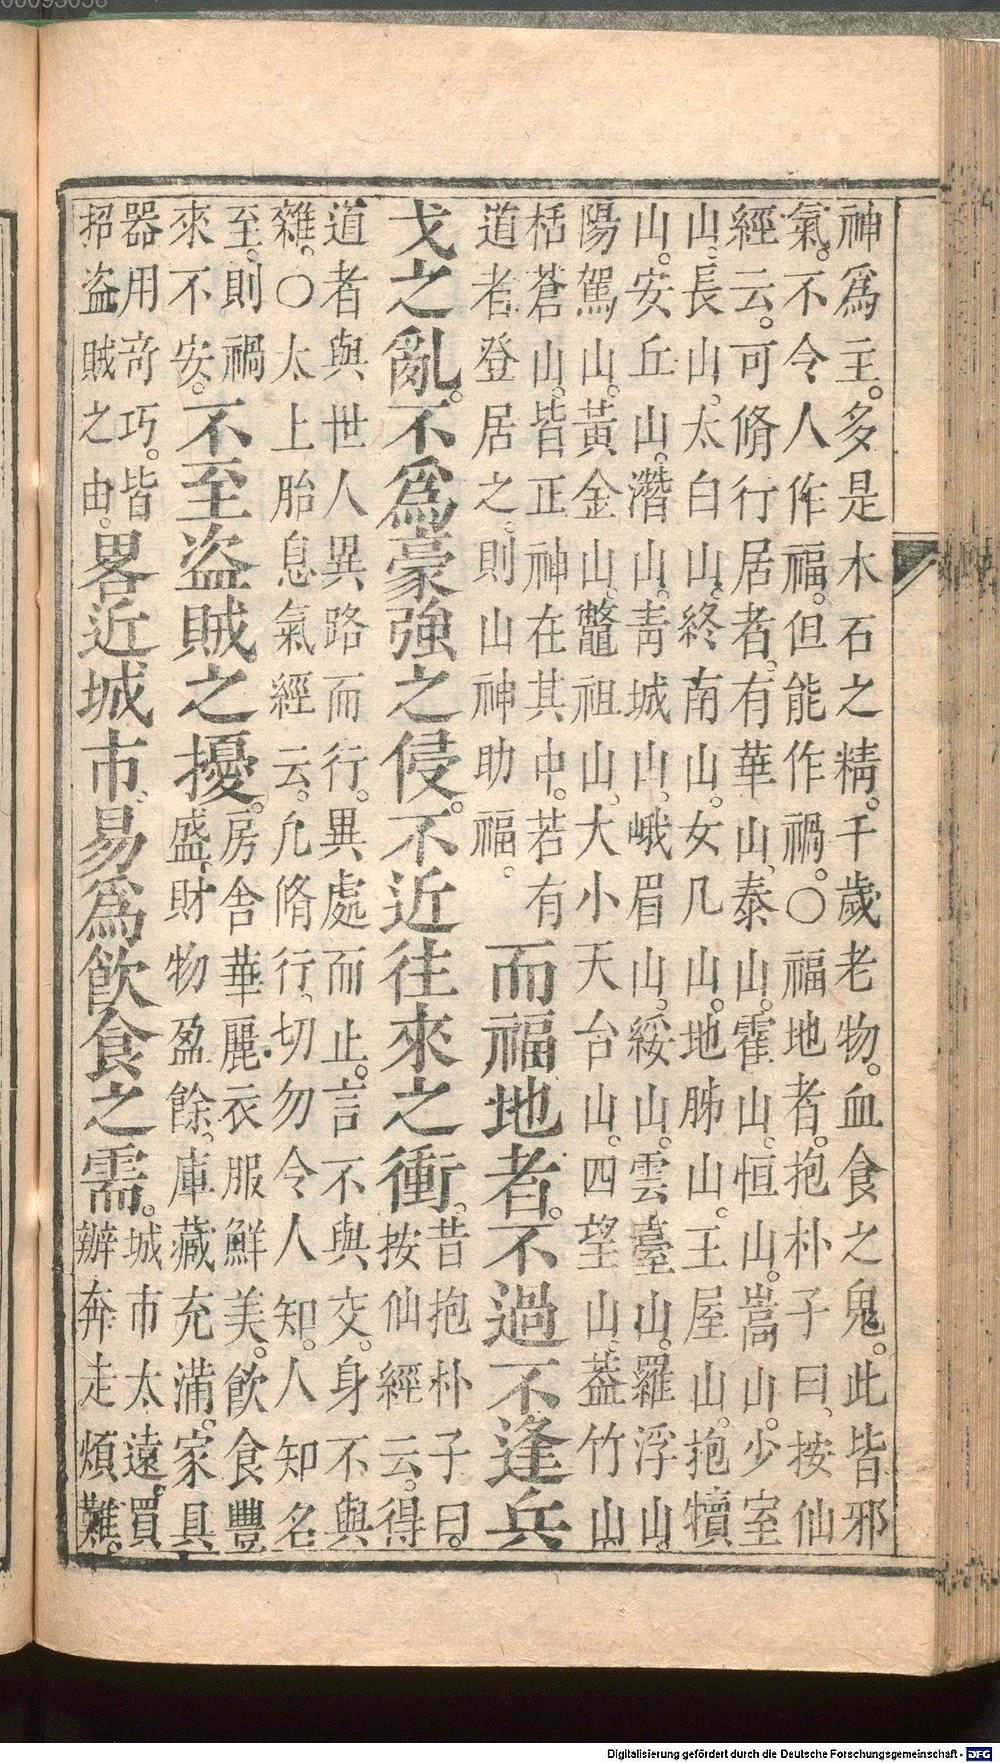 神爲主。多是木石之精。千歲老物。血食之鬼。此皆邪
氣。不令人作福。但能作禍。○福地者。抱朴子曰、按仙
經云。可脩行居者、有華山、泰山。霍山、恒山。嵩山。少室
山、長山、太白山。終南山。女几山。地肺山。王屋山。抱犢
山。安丘山。潛山。青城山、峨眉山。綏山。雲臺山。羅浮山、
陽駕山。黃金山。鼈祖山、大小天台山。四望山、蓋竹山、
栝蒼山。皆正神在其中。若有
道者登居之。則山神助福。
而福地者。不過不逢兵
戈之亂。不爲豪強之侵。不近往來之衝。
昔抱朴子曰。
按仙經云、得
道者與世人異路而行。異處而止。言不與交。身不與
雜。○太上胎息氣經云。凢脩行、切勿令人知。人知名
至。則禍
來不安。
不至盗賊之擾。
房舍華麗衣服鮮美。飲食豐
盛、財物盈餘。庫藏充滿。家具
器用奇巧。皆
招盗賊之由。
畧近城市、易爲飲食之需。
城市太遠。買
辦奔走煩難。
Digitalisierung gefördert durch die Deutsche Forschungsgemeinschaft - DFG